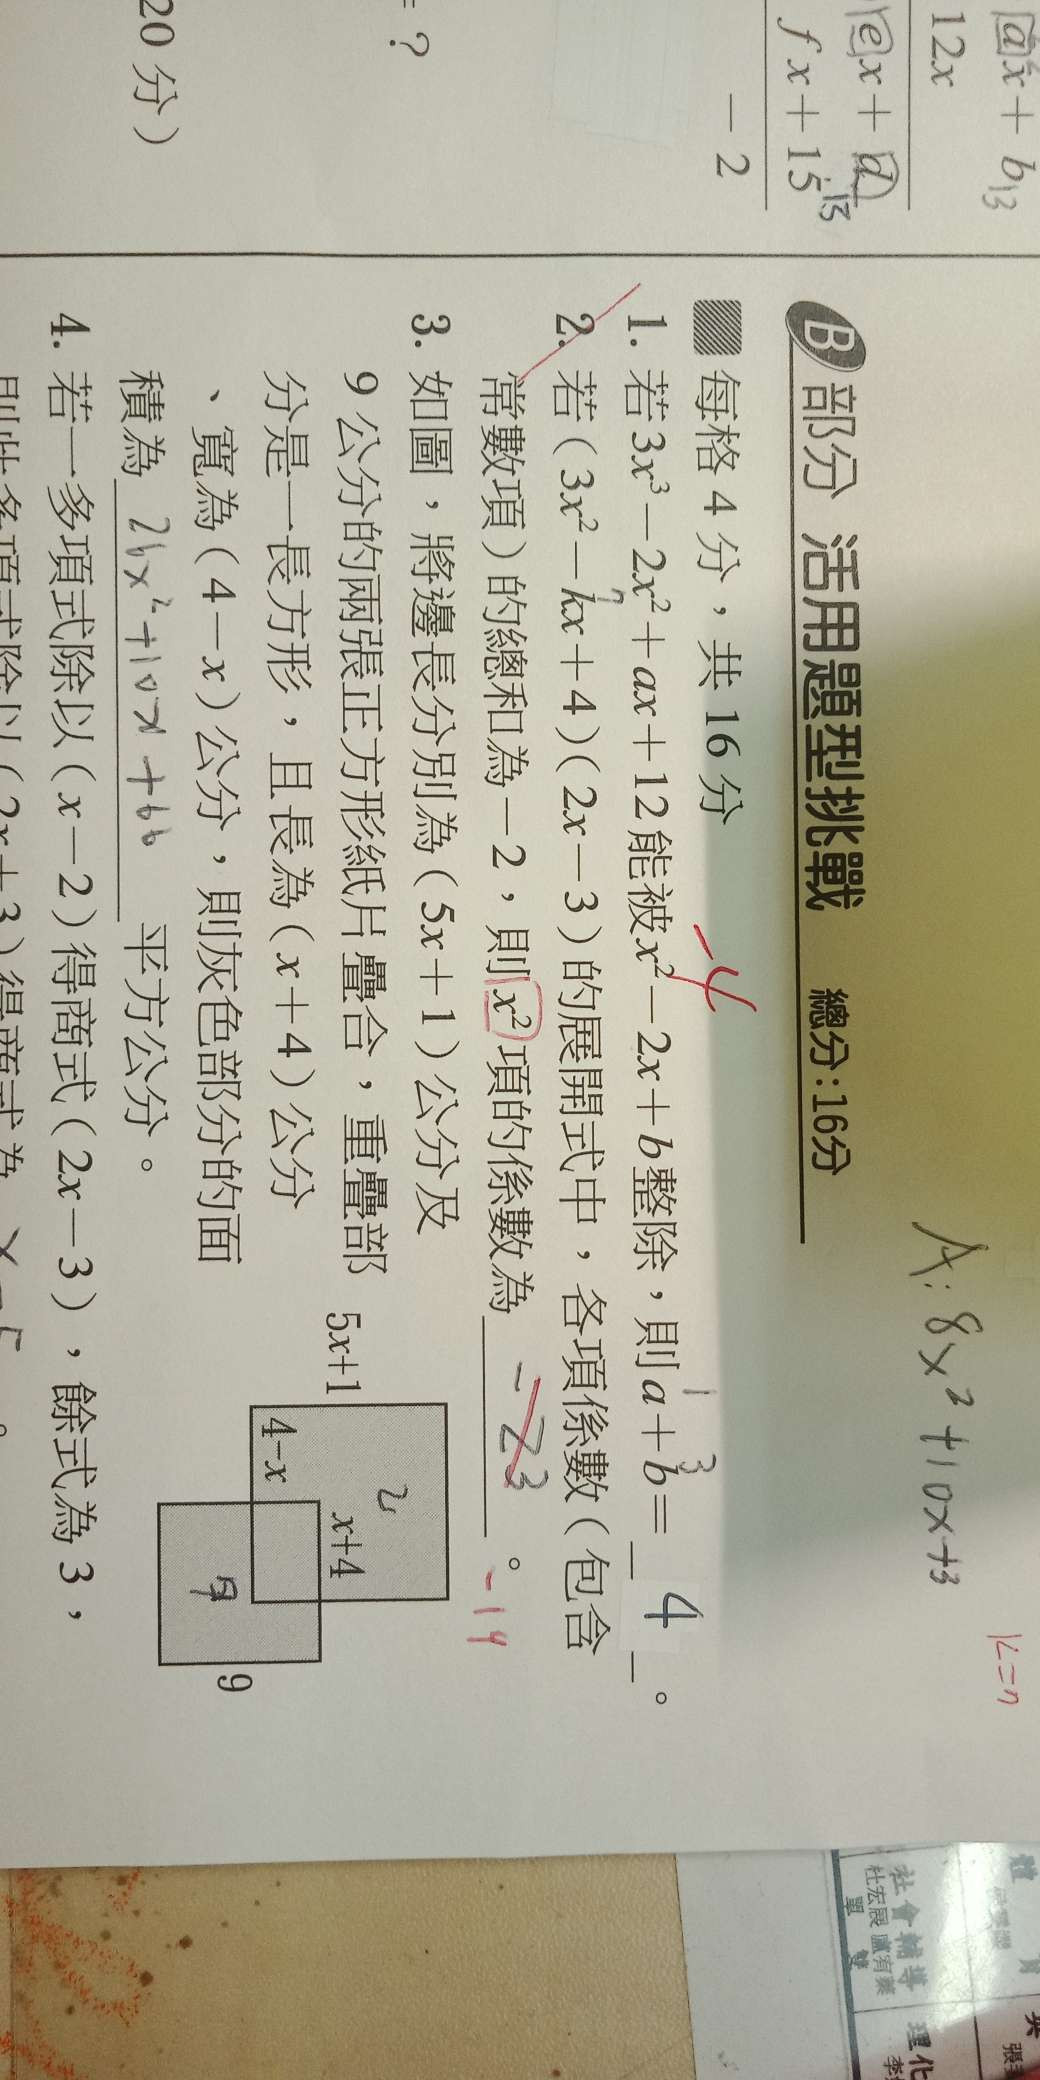 ax + b 13
12x
ex + d 13
fx + 15
- 2
= ?
20 分）
A: 8x² + 10x + 3
k = 7
B 部分 活用題型挑戰 總分:16分
每格 4 分，共 16 分
-4
1. 若 3x³ － 2x² ＋ ax ＋ 12 能被 x² － 2x ＋ b 整除，則 a ＋ b ＝ 4 。
1 3
2. 若（3x² － kx ＋ 4）（2x － 3）的展開式中，各項係數（包含
7
常數項）的總和為 －2，則 x² 項的係數為 -23 。
-19
3. 如圖，將邊長分別為（5x ＋ 1）公分及
9 公分的兩張正方形紙片疊合，重疊部
分是一長方形，且長為（x ＋ 4）公分
、寬為（4 － x）公分，則灰色部分的面
積為 26x² + 10x + 66 平方公分。
5x+1
4-x
x+4
9
4. 若一多項式除以（x － 2）得商式（2x － 3），餘式為 3，
則此多項式除以（2x ＋ 3）得商式為 x - 5 。
社會 輔導 理化
杜宏殷
單 雙